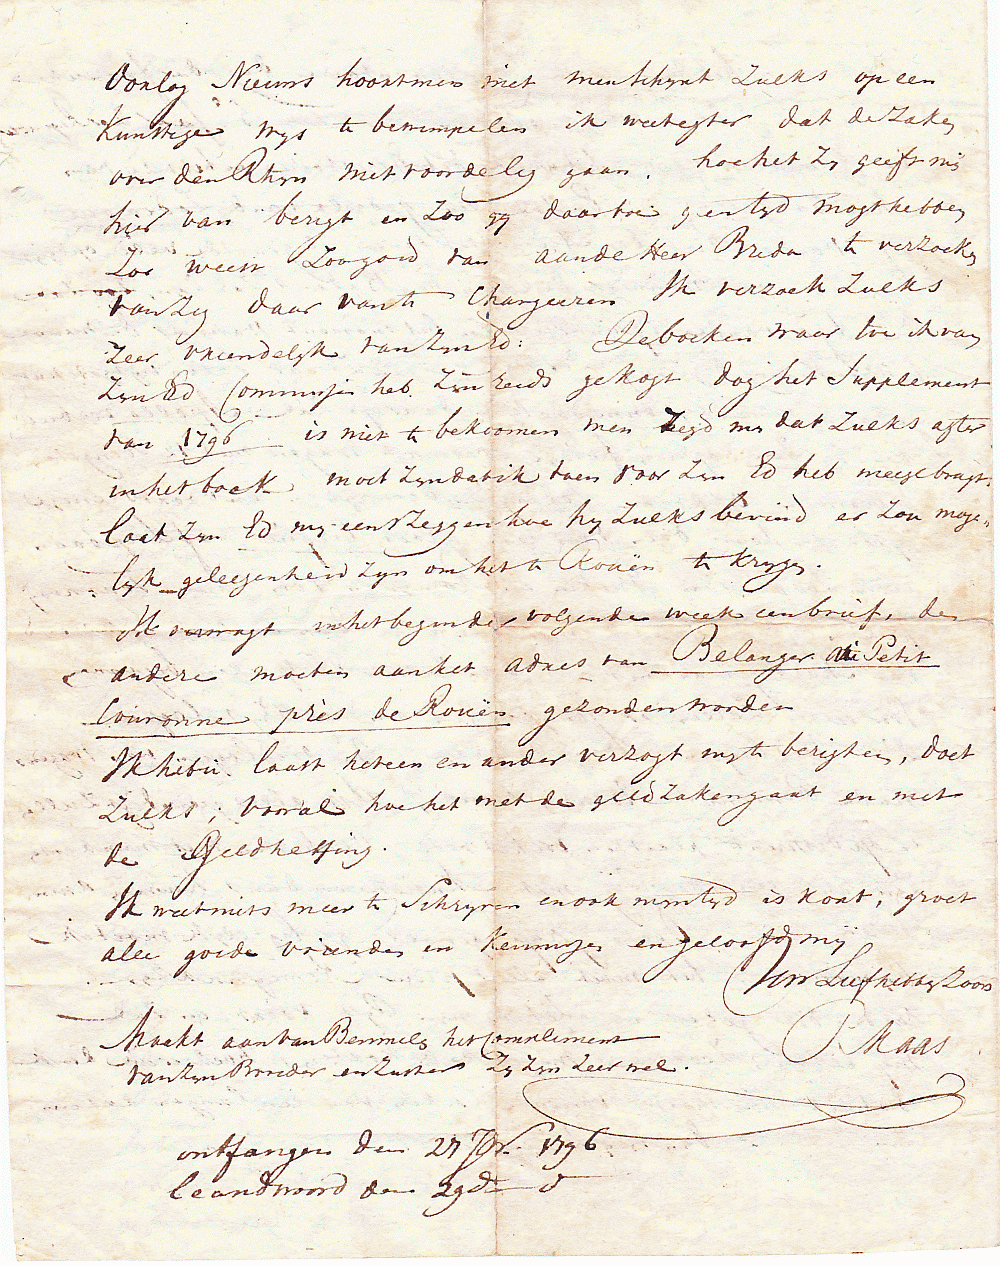 Oorlog Nieuws hoort men niet men schynt zulks op een
Kunstige wys te bewimpelen ik weet egter dat de Zaken
over den Rhyn niet voordelig gaan. hoe het zy geeft mij
hier van berigt en Zoo gy daar toe geen tyd mogt hebben
Zoo weest Zoo goed van aan de Heer Breda te verzoeken
van Zig daar van te Chargeeren Ik verzoek Zulks
Zeer vriendelyk van Zyn Ed: De boeken waar toe ik van
Zyn Ed Commissie heb Zyn reeds gekogt dog het Supplement
van 1796 is niet te bekoomen men Zegd my dat Zulks agter
in het boek moet Zyn dat ik toen voor Zyn Ed heb meegebragt.
laat Zyn Ed my eens Zeggen hoe hy Zulks bevind er Zou moge„
lyk geleegenheid Zyn om het te Rouën te krygen.
Ik verwagt in het begin der volgende week een brief, de
andere moeten aan het adres van Belanger au Petit
Couronne près de Rouën gezonden worden
Ik heb u laast het een en ander verzogt my te berigten, doet
Zulks; vooral hoe het met de geld Zaken gaat en met
de Geldheffing.
Ik weet niets meer te Schryven en ook myn tyd is kort; groet
alle goede vrienden en Kennissen en geloofd mij
Uw Liefhebbe Zoon
P Maas
Maakt aan van Bemmelen het Compliment
van Zyn Broeder en Zuster Zy Zyn Zeer wel.
ontfangen den 27 1796
beandwoord den 29 d°